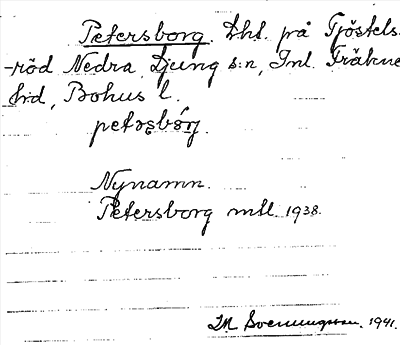 Petersborg. Lht. på Tjöstels-
-röd Nedra, Ljung s:n, Inl. Fräkne
hrd, Bohus l.
Nynamn.
Petersborg mtl. 1938.
Svenningsson. 1941.